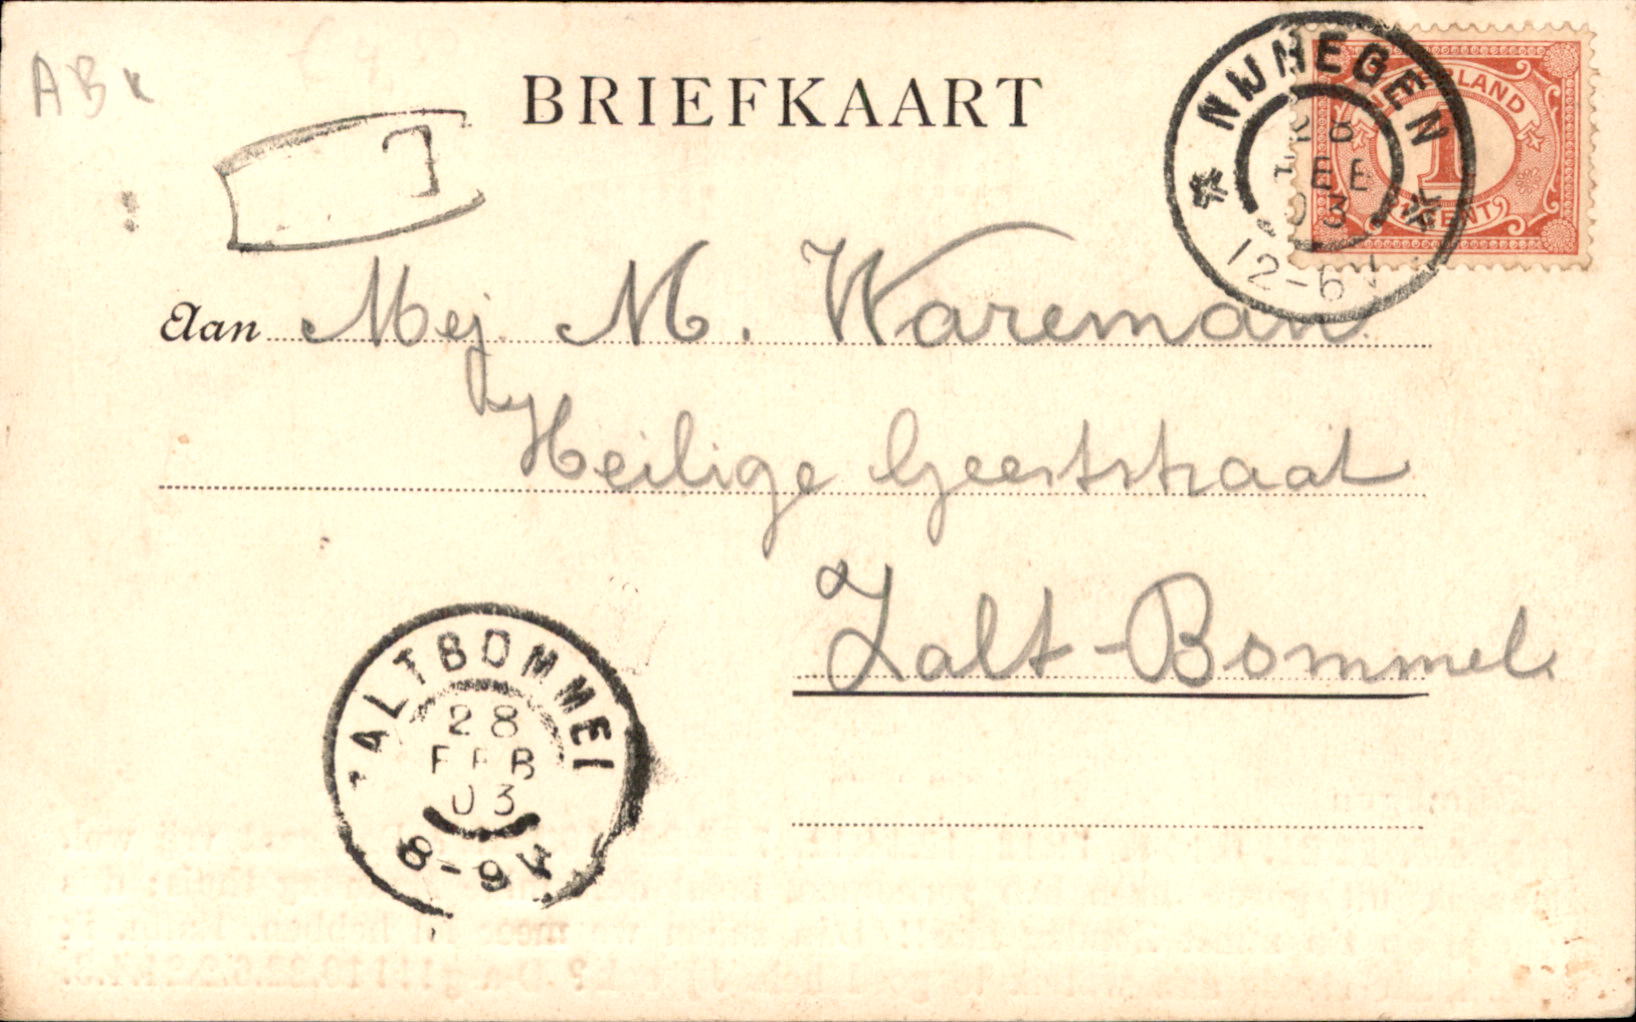 ABK
BRIEFKAART
NIJMEGEN
28
FEB
03
12-6V
NEDERLAND
1
CENT
Aan Mej M. Wareman.
Heilige Geeststraat
Zalt-Bommel.
ZALTBOMMEL
28
FEB
03
8-9V